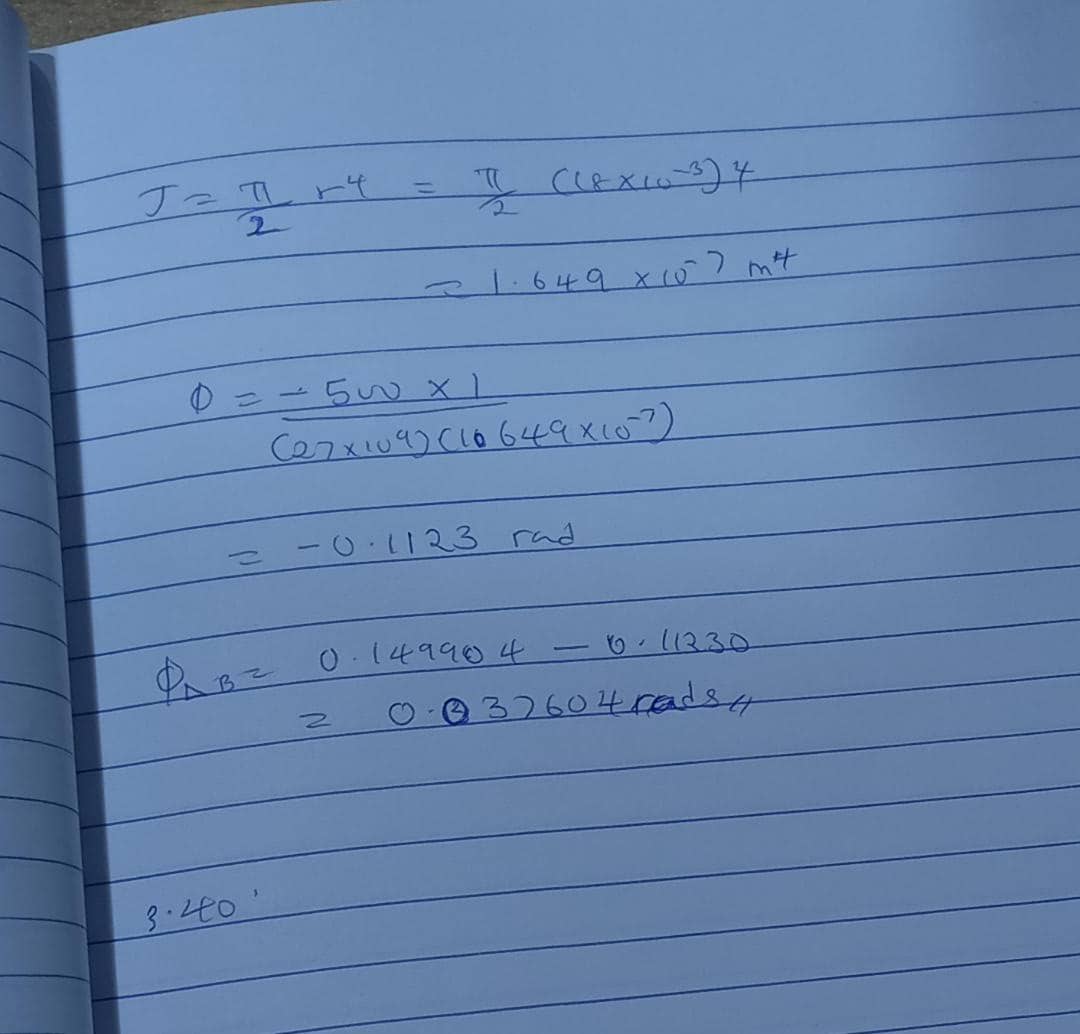 J = π/2 r⁴ = π/2 (18 × 10⁻³)⁴
= 1.649 × 10⁻⁷ m⁴
Φ = - 500 × 1 / (27 × 10⁹)(1.649 × 10⁻⁷)
= - 0.1123 rad
Φ_AB = 0.149904 - 0.11230
= 0.037604 rads
3.40